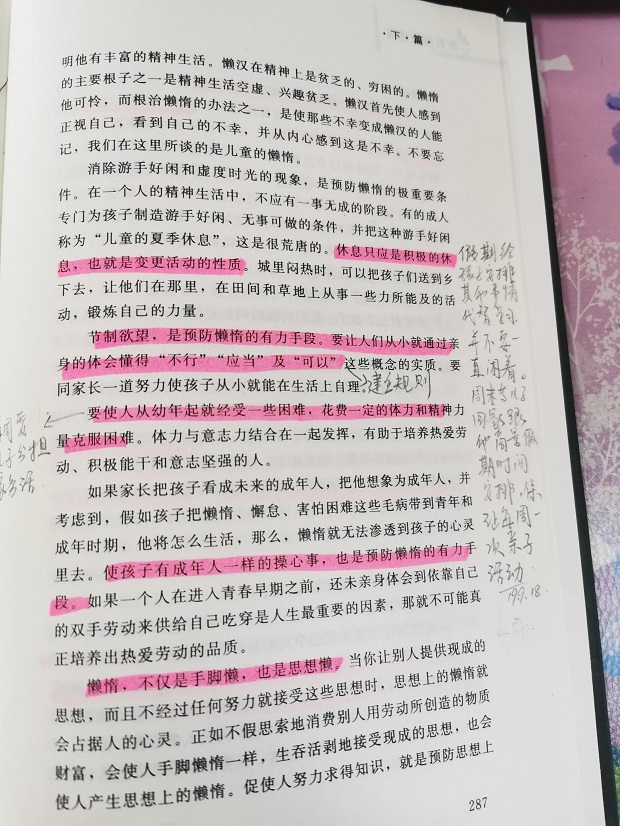 ·下·篇·
明他有丰富的精神生活。懒汉在精神上是贫乏的、穷困的。懒惰
的主要根子之一是精神生活空虚、兴趣贫乏。懒汉首先使人感到
他可怜，而根治懒惰的办法之一，是使那些不幸变成懒汉的人能
正视自己，看到自己的不幸，并从内心感到这是不幸。不要忘
记，我们在这里所谈的是儿童的懒惰。
消除游手好闲和虚度时光的现象，是预防懒惰的极重要条
件。在一个人的精神生活中，不应有一事无成的阶段。有的成人
专门为孩子制造游手好闲、无事可做的条件，并把这种游手好闲
称为“儿童的夏季休息”，这是很荒唐的。休息只应是积极的休
息，也就是变更活动的性质。城里闷热时，可以把孩子们送到乡
下去，让他们在那里，在田间和草地上从事一些力所能及的活
动，锻炼自己的力量。
节制欲望，是预防懒惰的有力手段。要让人们从小就通过亲
身的体会懂得“不行”“应当”及“可以”这些概念的实质。要
同家长一道努力使孩子从小就能在生活上自理。
要使人从幼年起就经受一些困难，花费一定的体力和精神力
量克服困难。体力与意志力结合在一起发挥，有助于培养热爱劳
动、积极能干和意志坚强的人。
如果家长把孩子看成未来的成年人，把他想象为成年人，并
考虑到，假如孩子把懒惰、懈怠、害怕困难这些毛病带到青年和
成年时期，他将怎么生活，那么，懒惰就无法渗透到孩子的心灵
里去。使孩子有成年人一样的操心事，也是预防懒惰的有力手
段。如果一个人在进入青春早期之前，还未亲身体会到依靠自己
的双手劳动来供给自己吃穿是人生最重要的因素，那就不可能真
正培养出热爱劳动的品质。
懒惰，不仅是手脚懒，也是思想懒。当你让别人提供现成的
思想，而且不经过任何努力就接受这些思想时，思想上的懒惰就
会占据人的心灵。正如不假思索地消费别人用劳动所创造的物质
财富，会使人手脚懒惰一样，生吞活剥地接受现成的思想，也会
使人产生思想上的懒惰。促使人努力求得知识，就是预防思想上
287
建立规则
假期给
孩子安排
其他事情
代替学习
并不要一
直闲着。
周末
回家跟
他商量假
期时间
安排，保
证每周一
次亲子
活动